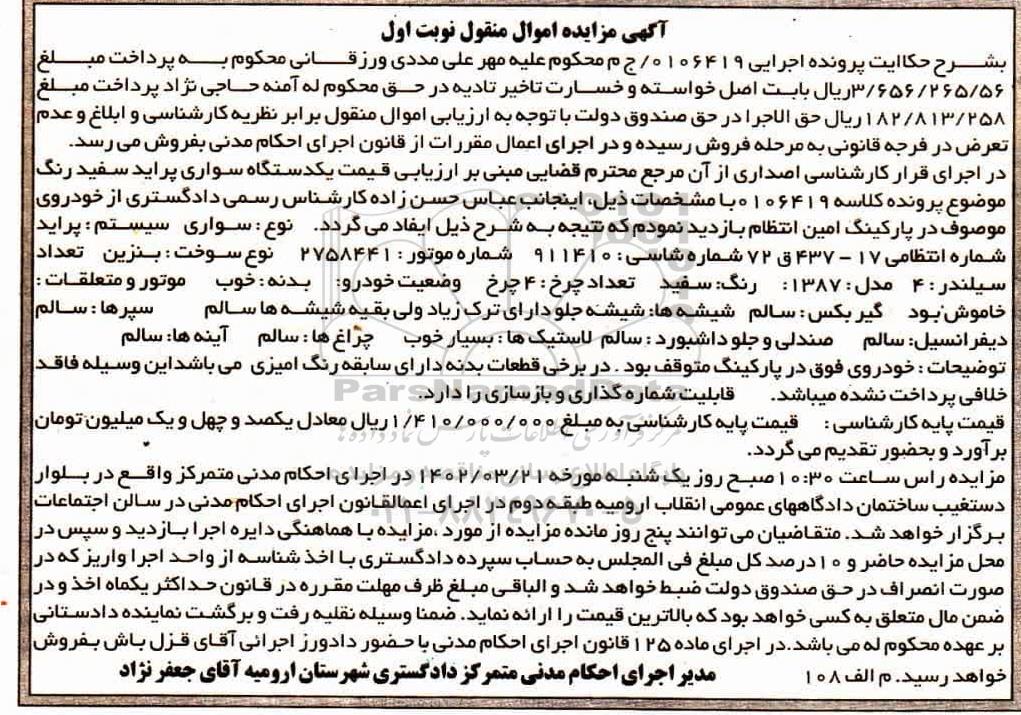 آگهی مزایده اموال منقول نوبت اول
بشرح حکاایت پرونده اجرایی ۰۱۰۶۴۱۹/ج م محکوم علیه مهر علی مددی ورزقانی محکوم به پرداخت مبلغ
۳/۶۵۶/۲۶۵/۵۶ریال بابت اصل خواسته و خسارت تاخیر تادیه در حق محکوم له آمنه حاجی نژاد پرداخت مبلغ
۱۸۲/۸۱۳/۲۵۸ریال حق الاجرا در حق صندوق دولت با توجه به ارزیابی اموال منقول برابر نظریه کارشناسی و ابلاغ و عدم
تعرض در فرجه قانونی به مرحله فروش رسیده و در اجرای اعمال مقررات از قانون اجرای احکام مدنی بفروش می رسد.
در اجرای قرار کارشناسی اصداری از آن مرجع محترم قضایی مبنی بر ارزیابی قیمت یکدستگاه سواری پراید سفید رنگ
موضوع پرونده کلاسه ۰۱۰۶۴۱۹با مشخصات ذیل، اینجانب عباس حسن زاده کارشناس رسمی دادگستری از خودروی
موصوف در پارکینگ امین انتظام بازدید نمودم که نتیجه به شرح ذیل ایفاد می گردد. نوع: سواری سیستم: پراید
شماره انتظامی ۱۷ - ۴۳۷ق ۷۲ شماره شاسی: ۹۱۱۴۱۰ شماره موتور: ۲۷۵۸۴۴۱ نوع سوخت: بنزین تعداد
سیلندر: ۴ مدل: ۱۳۸۷: رنگ: سفید تعداد چرخ: ۴چرخ وضعیت خودرو: بدنه: خوب موتور و متعلقات:
خاموش بود گیر بکس: سالم شیشه ها: شیشه جلو دارای ترک زیاد ولی بقیه شیشه ها سالم سپرها: سالم
دیفرانسیل: سالم صندلی و جلو داشبورد: سالم لاستیک ها: بسیار خوب چراغ ها: سالم آینه ها: سالم
توضیحات: خودروی فوق در پارکینگ متوقف بود. در برخی قطعات بدنه دارای سابقه رنگ امیزی می باشداین وسیله فاقد
خلافی پرداخت نشده میباشد. قابلیت شماره گذاری و بازسازی را دارد.
ParsNamadData
قیمت پایه کارشناسی: قیمت پایه کارشناسی به مبلغ ۱/۴۱۰/۰۰۰/۰۰۰ریال معادل یکصد و چهل و یک میلیون تومان
برآورد و بحضور تقدیم می گردد.
مزایده راس ساعت ۱۰:۳۰صبح روز یک شنبه مورخه ۱۴۰۲/۰۳/۲۱ در اجرای احکام مدنی متمرکز واقع در بلوار
دستغیب ساختمان دادگاههای عمومی انقلاب ارومیه طبقه دوم در اجرای اعمالقانون اجرای احکام مدنی در سالن اجتماعات
برگزار خواهد شد. متقاضیان می توانند پنج روز مانده مزایده از مورد ،مزایده با هماهنگی دایره اجرا بازدید و سپس در
محل مزایده حاضر و ۱۰درصد کل مبلغ فی المجلس به حساب سپرده دادگستری با اخذ شناسه از واحد اجرا واریز که در
صورت انصراف در حق صندوق دولت ضبط خواهد شد و الباقی مبلغ ظرف مهلت مقرره در قانون حداکثر یکماه اخذ و در
ضمن مال متعلق به کسی خواهد بود که بالاترین قیمت را ارائه نماید. ضمنا وسیله نقلیه رفت و برگشت نماینده دادستانی
بر عهده محکوم له می باشد.در اجرای ماده ۱۲۵قانون اجرای احکام مدنی با حضور دادورز اجرائی آقای قزل باش بفروش
خواهد رسید. م الف ۱۰۸
مدیر اجرای احکام مدنی متمرکز دادگستری شهرستان ارومیه آقای جعفر نژاد